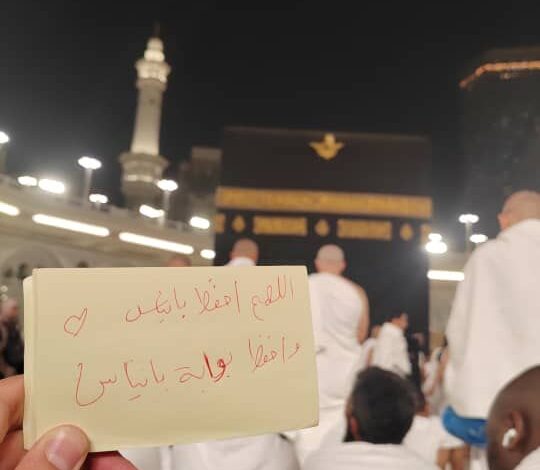 اللهم احفظ بانياس ♡
واحفظ بوابة بانياس